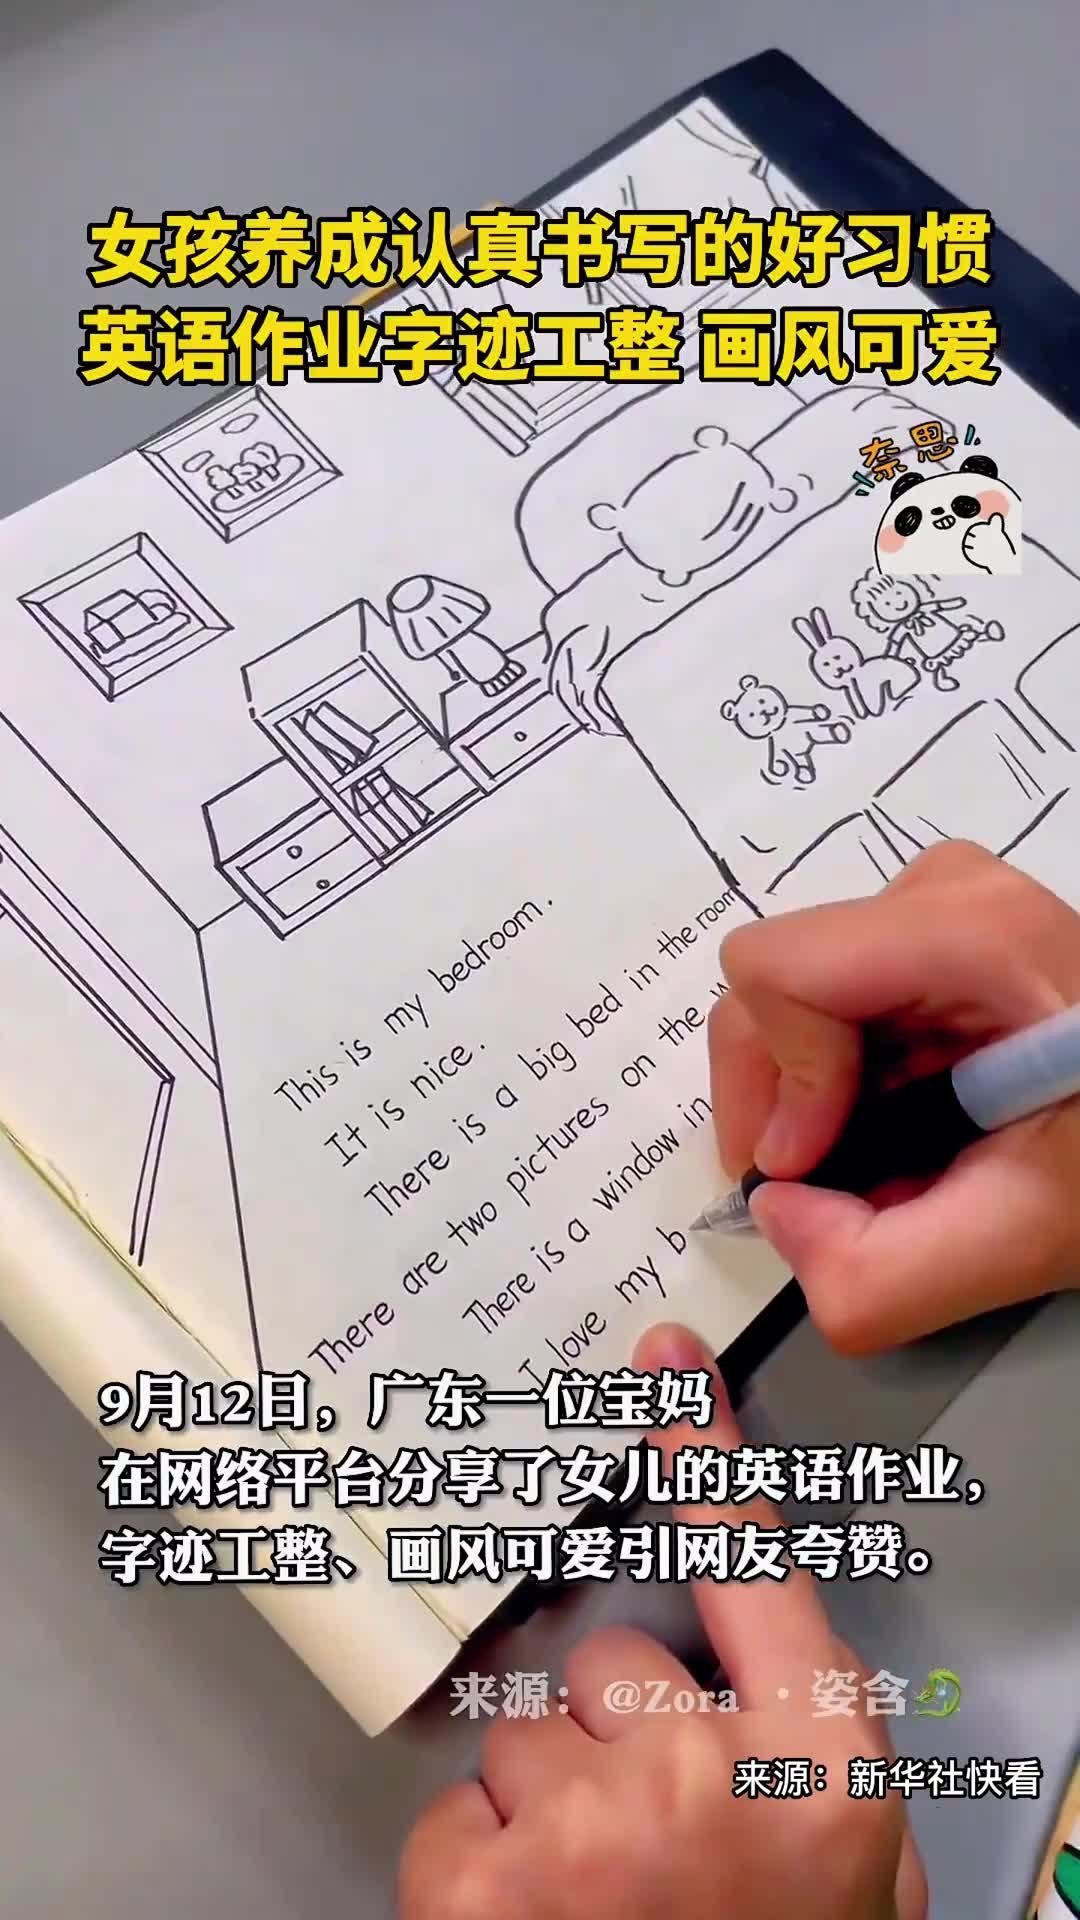 女孩养成认真书写的好习惯
英语作业字迹工整 画风可爱
奈思
This is my bedroom.
It is nice.
There is a big bed in the room
There are two pictures on the w
There is a window in
I love my b
9月12日，广东一位宝妈
在网络平台分享了女儿的英语作业，
字迹工整、画风可爱引网友夸赞。
来源：@Zora ·姿含
来源：新华社快看